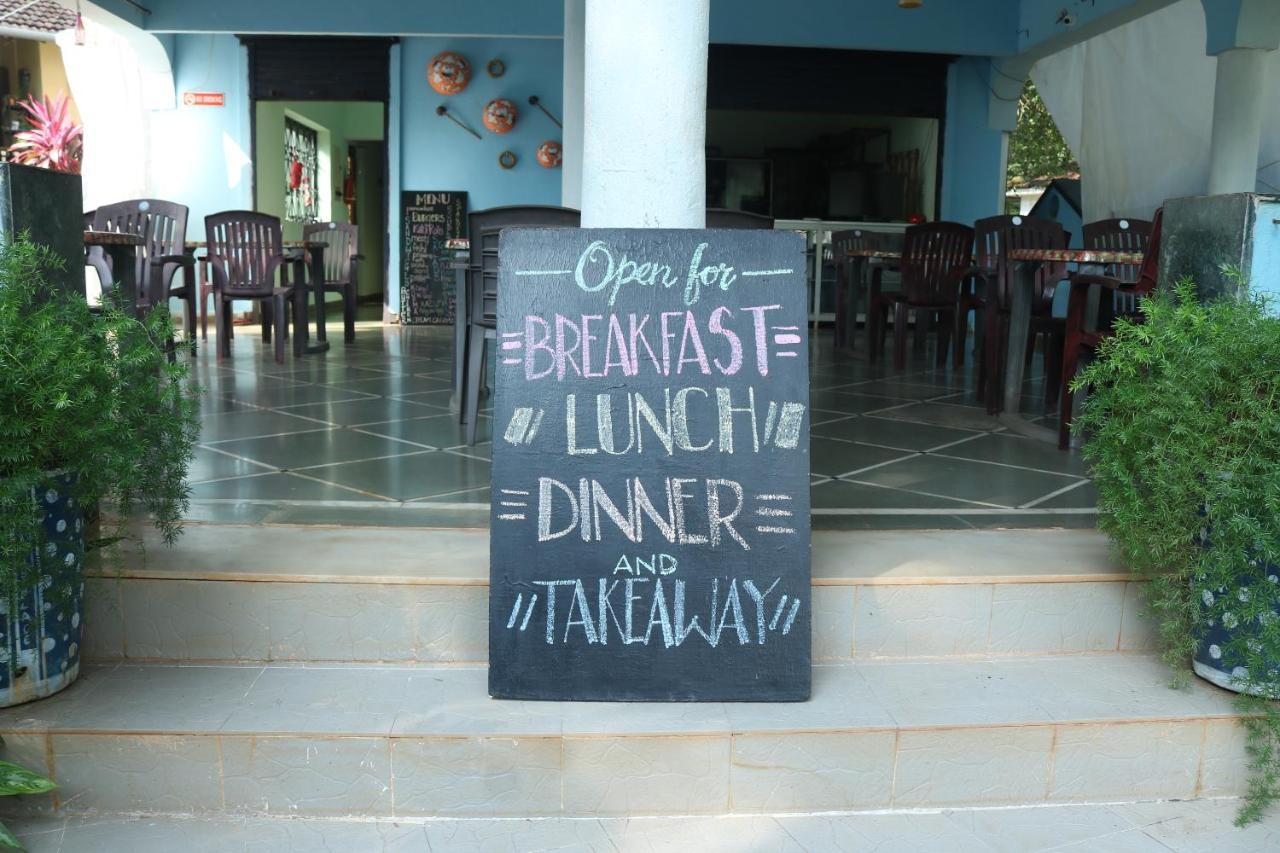 NO SMOKING
MENU
BURGERS
Open for
BREAKFAST
LUNCH
DINNER
AND
TAKEAWAY